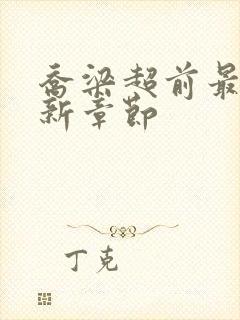 乔梁超前最
新章节
丁克